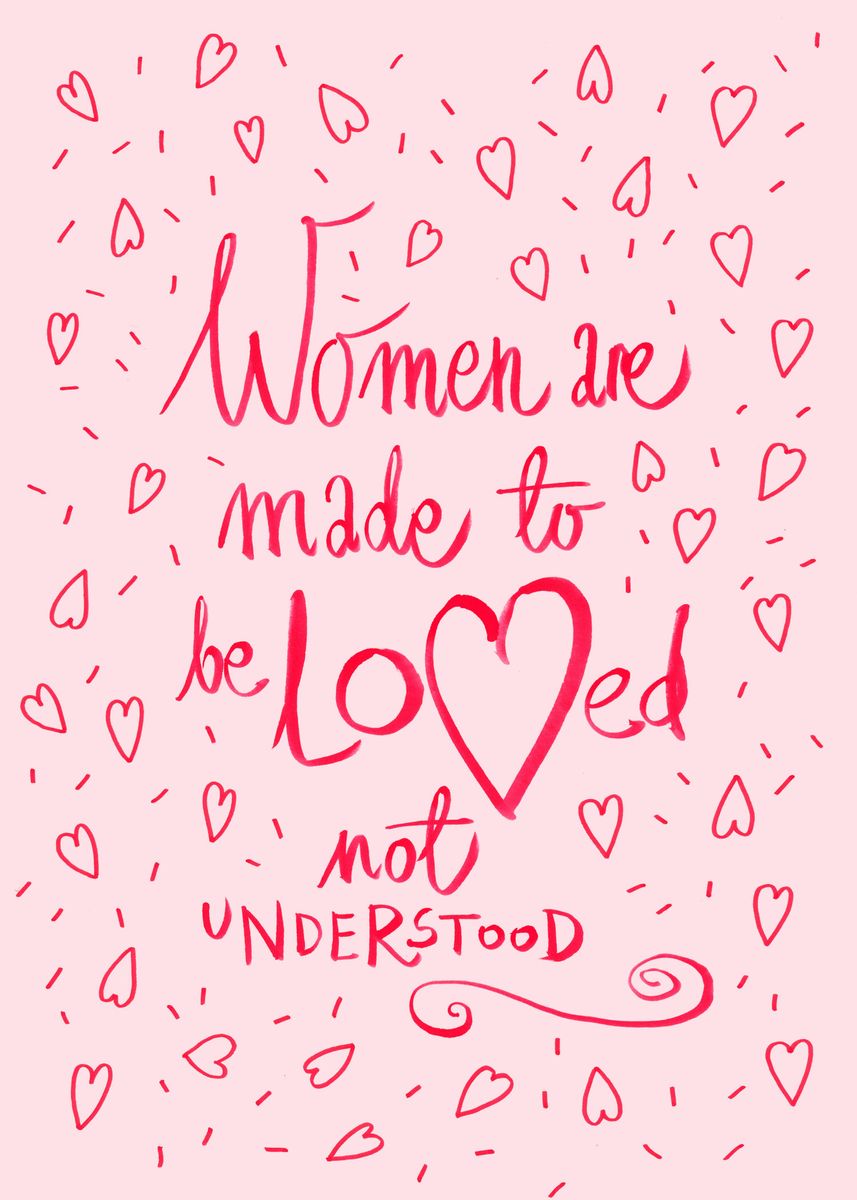 Women are
made to
be Lo♥ed
not
UNDERSTOOD